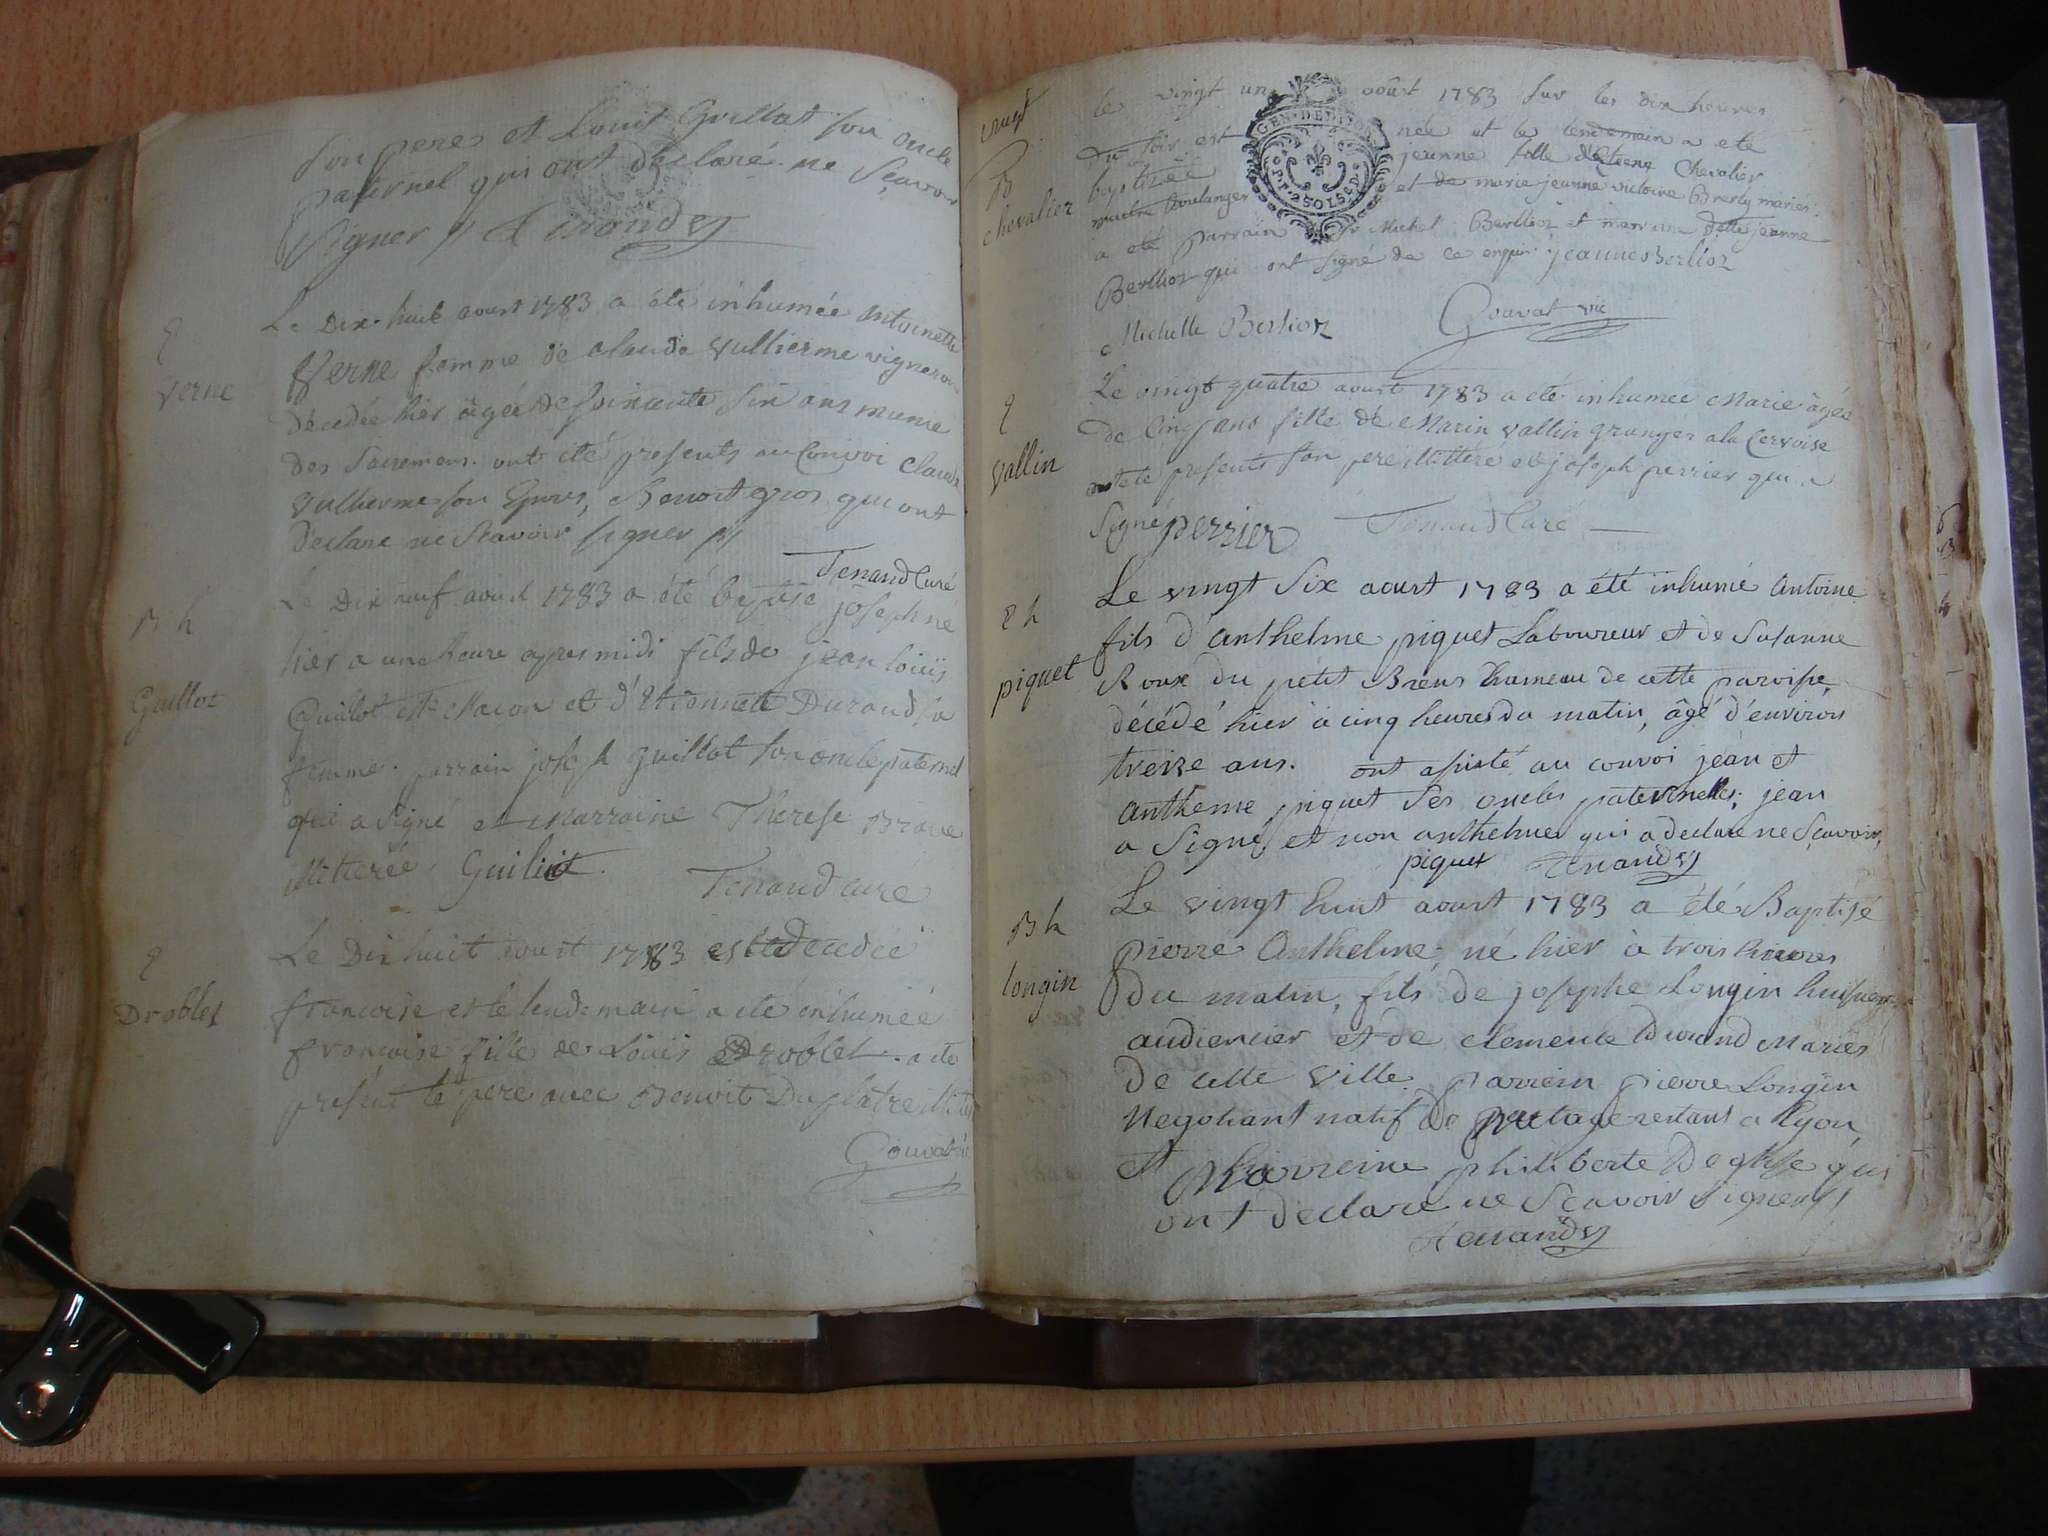 son pere et Louis Guillot son oncle
paternel qui ont declaré ne Sçavoir
Signer //
Verne
Le Dix-huit aoust 1783 a été inhumée Antoinette
Verne femme de claude Vullierme vigneron
décédée hier âgée de soixante six ans munie
des Sacremens. ont été presents au Convoi Claude
Vullierme son Epoux, Benoit gros qui ont
Declaré ne Scavoir signer //
Tenand Curé
B h
Guillot
Le Dix neuf aoust 1783 a été baptisé joseph né
hier a une heure apres midi fils de jean loüis
Guillot Me Macon et d'Etiennette Durand sa
femme. parrain joseph guillot son oncle paternel
qui a signé et Marraine Therese
illiterée Guillot
Tenand curé
Droblet
Le Dix huit aoust 1783 est decedée
francoise et le lendemain a été inhumée
françoise fille de Loüis Droblet. a été
present le pere avec Benoit Duplatre
Gouvat
aoust
B
chevalier
le vingt un aoûst 1783 sur les dix heures
du soir est née et le lendemain a eté
baptizée jeanne fille d'Etiene Chevalier
maitre Boulanger et de marie jeanne victoire Brerly mariés.
a eté parrain Sr Michel Berllioz et marraine delle jeanne
Berllioz qui ont signé de ce enquis jeannes Berlioz
Michelle Berlioz Gouvat vic
GEN. DE DIJON
P.P. 2SOLS 6 DEN.
vallin
Le vingt quatre aoust 1783 a été inhumée Marie âgée
de Cinq ans fille de Marin vallin granger a la Cervoise
ont été presents son pere illitéré et joseph perrier qui a
Signé perrier Tenand Curé
piquet
Le vingt Six aoust 1783 a été inhumé Antoine
fils d'anthelme piquet Laboureur et de Susanne
Roux du petit Brens hameau de cette paroisse,
décédé hier à cinq heures du matin, âgé d'environ
treize ans. ont assisté au convoi jean et
Antheme piquet Ses oncles paternelles; jean
a Signé et non anthelme qui a declaré ne Sçavoir,
piquet Tenand
B h
longin
Le vingt huit aoust 1783 a été Baptisé
pierre Anthelme né hier à trois heures
du matin, fils de josephe Longin huissier
audiencier et de clemence Durand Mariés
de cette ville. parrein pierre Longin
Negotiant natif de restant a Lyon,
et Marreine philiberte qui
ont declaré ne Scavoir signer //
Tenand